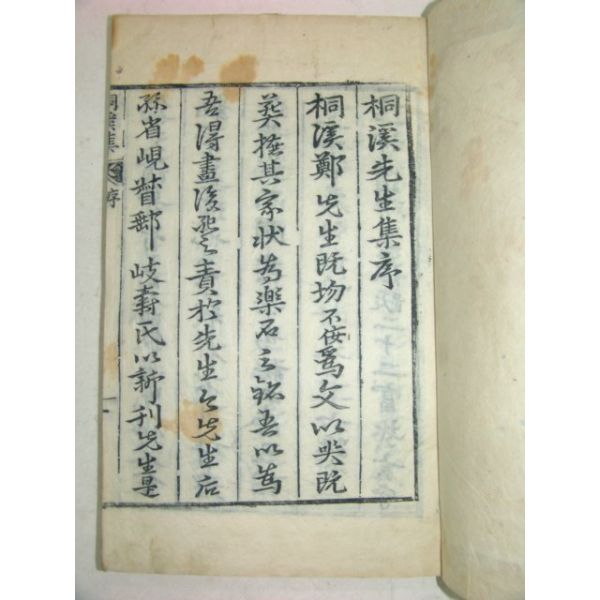 桐溪先生集序
桐溪鄭先生旣歿不佞爲文以哭旣
葬撫其家狀爲樂石之銘吾以爲
吾得盡後死之責於先生今先生后
孫省峴督郵岐壽氏以新刊先生
桐溪集 序